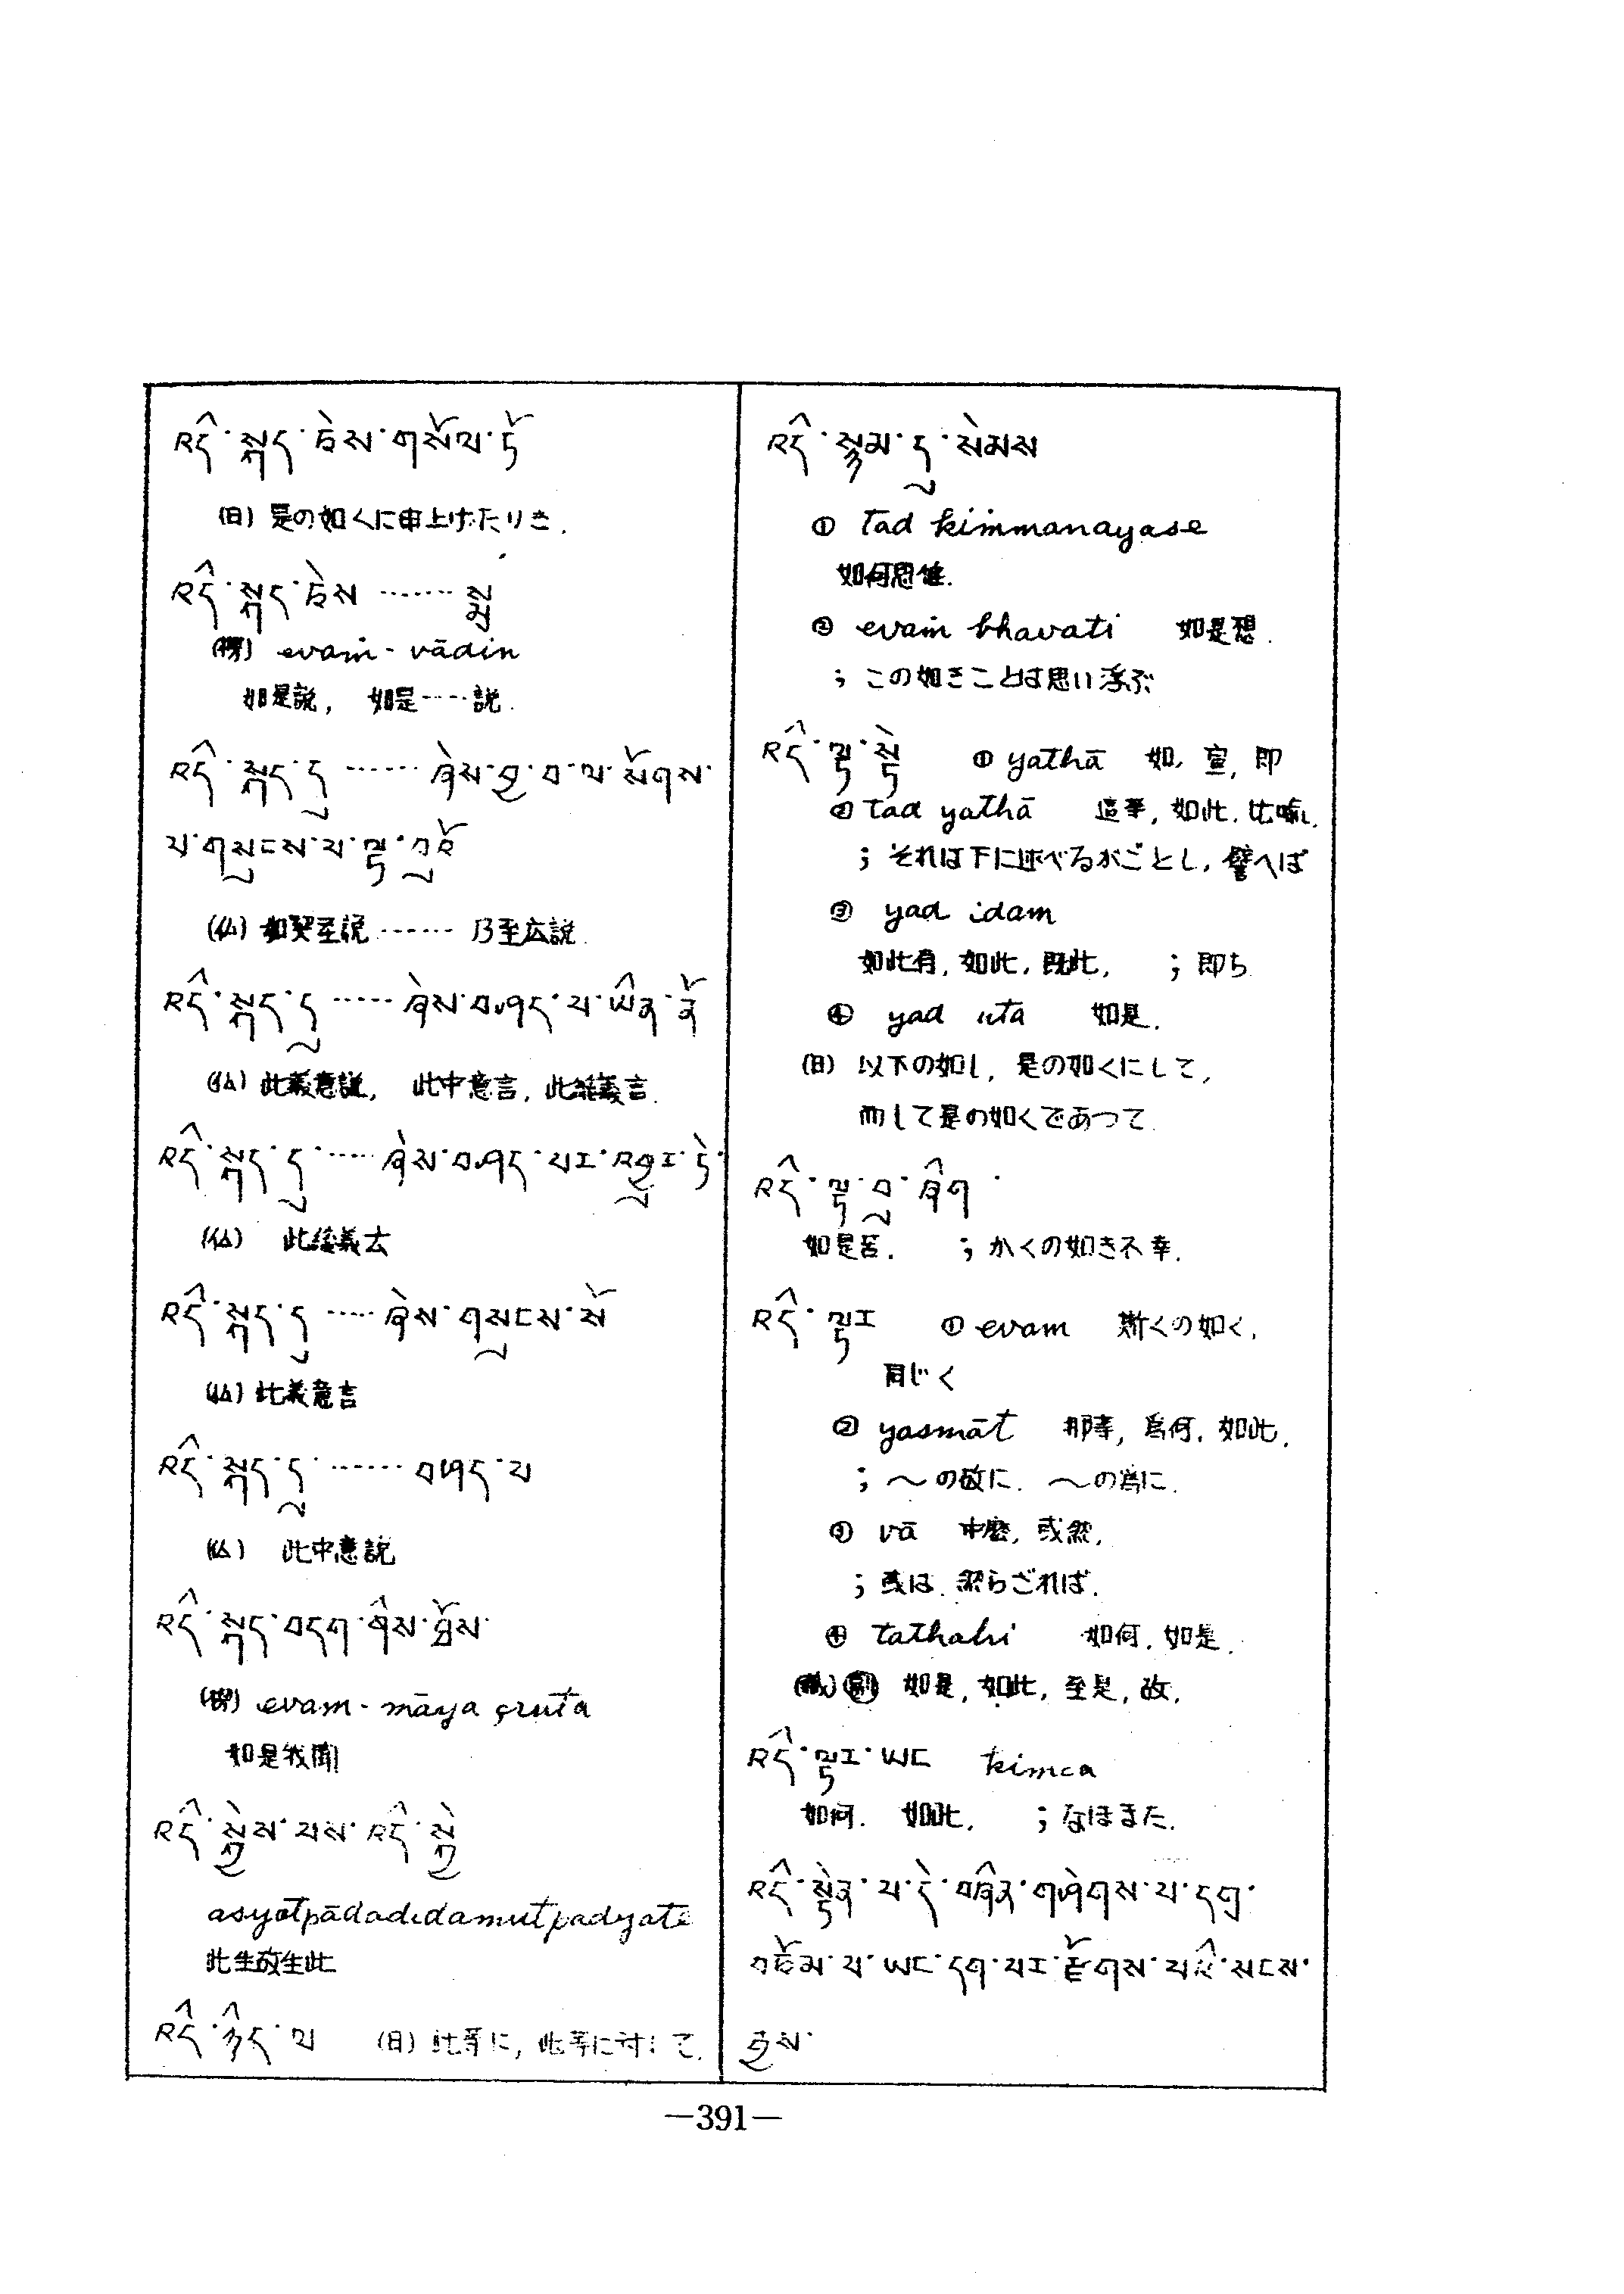 འདི་སྐད་ཅེས་གསོལ་ཏོ
(日) 是の如くに申上げたりき.
འདི་སྐད་ཅེས ‥‥‥ སྨྲ
evaṁ-vādin
如是説, 如是‥‥説.
འདི་སྐད་དུ ‥‥‥ ཞེས་བྱ་བ་ལ་སོགས་
པ་གསུངས་པ་ལྟ་བུའོ
(仏) 如契至説 ‥‥‥ 乃至広説.
འདི་སྐད་དུ ‥‥‥ ཞེས་བཤད་པ་ཡིན་ནོ
(仏) 此義意説, 此中意言, 此義言.
འདི་སྐད་དུ་‥‥‥ ཞེས་བཤད་པར་འགྱུར་ཏེ་
(仏) 此後義去
འདི་སྐད་དུ ‥‥‥ ཞེས་གསུངས་སོ
(仏) 此義意言
འདི་སྐད་དུ་‥‥‥ བཤད་པ
(仏) 此中意説
འདི་སྐད་བདག་གིས་ཐོས་
evam-māya çruta
如是我聞
འདི་སྐྱེས་པས་འདི་སྐྱེ
asyotpādadidamutpadyate
此生故生此
འདི་ཉིད་ལ (日) 此等に, 此等に対して.
འདི་སྙམ་དུ་སེམས
① tad kimmanayase
如何思惟.
② evaṁ bhavati 如是想.
; この如きことは思い浮ぶ
འདི་ལྟ་སྟེ ① yathā 如, 宣, 即
② tad yathā 這等, 如此, 比喩し.
; それは下に述べるがごとし, 譬へば
③ yad idam
如此有, 如此, 既此, ; 即ち
④ yad uta 如是.
(日) 以下の如し, 是の如くにして,
而して是の如くであつて.
འདི་ལྟ་བུ་ཞིག
如是苦. ; かくの如き不幸.
འདི་ལྟར ① evam 斯くの如く,
同じく
② yasmāt 那等, 為何, 如此.
; 〜の故に. 〜の為に.
③ vā 或然,
; 或は. 然らざれば.
④ tathahi 如何, 如是.
如是, 如此, 至是, 故.
འདི་ལྟར་ཡང kimca
如何. 如此. ; なほまた.
འདི་སྟེན་པ་དེ་བཞིན་གཤེགས་པ་དགྲ་
བཅོམ་པ་ཡང་དག་པར་རྫོགས་པའི་སངས་
རྒྱས་
—391—